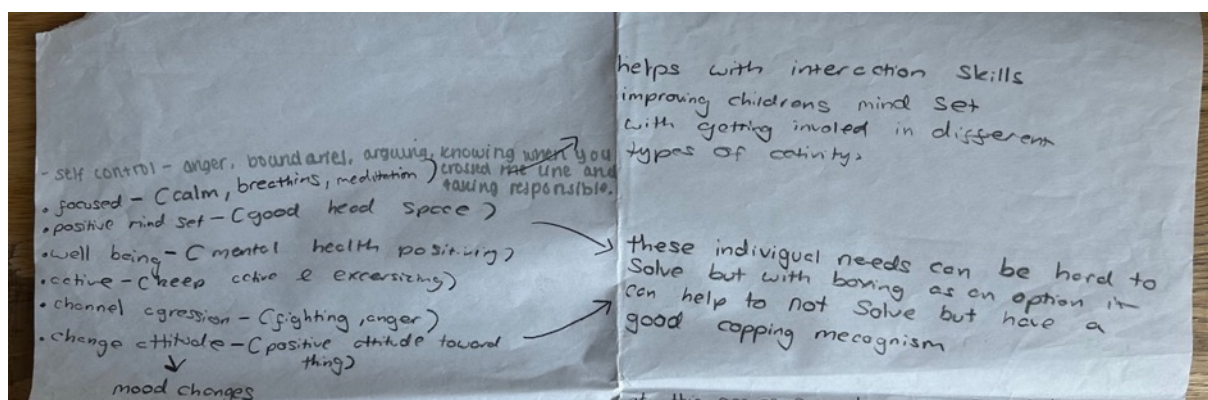 - self control - anger, boundaries, arguing, knowing when you
crossed the line and
taking responsible.
• focused - (calm, breathing, meditation)
• positive mind set - (good head space)
• well being - (mental health positiving)
• active - (keep active & excersizing)
• channel agression - (fighting, anger)
• change attitude - (positive attitude toward
thing)
mood changes
helps with interaction skills
improving childrens mind set
with getting involed in different
types of activity.
these indivigual needs can be hard to
solve but with boxing as an option it
can help to not solve but have a
good copping mecognism